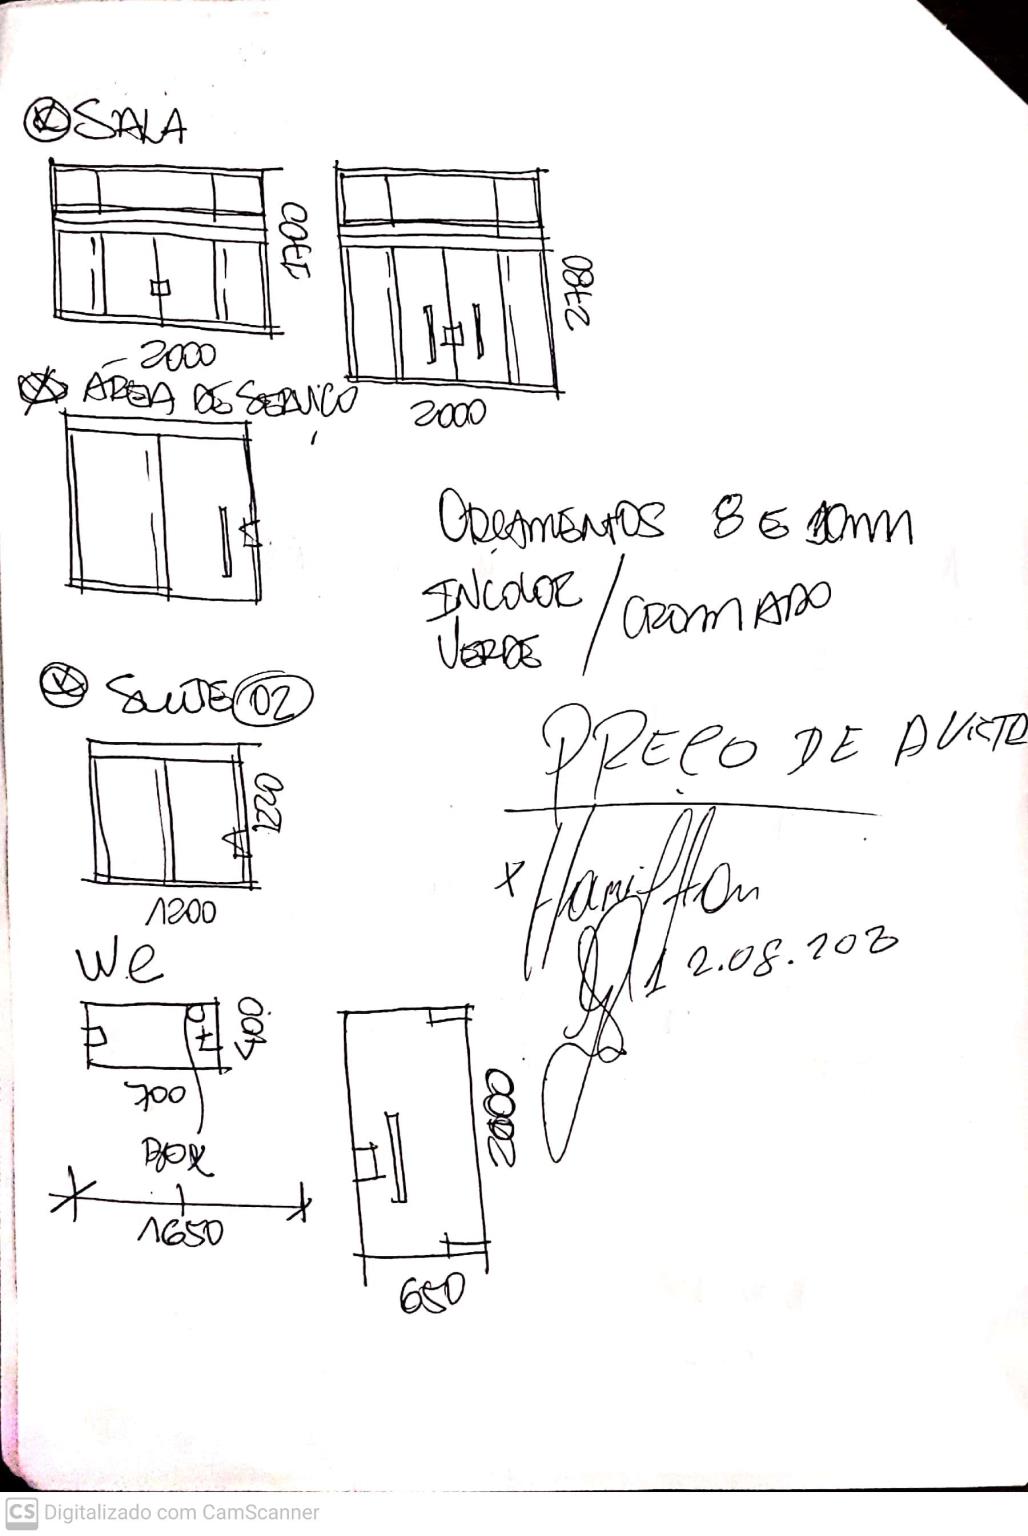 SALA
1700
2780
2000
2000
ÁREA DE SERVIÇO
ORÇAMENTOS 8 E 10mm
INCOLOR / CROMADO
VERDE
SUITE 02
1220
1200
PREÇO DE AVISTA
x Hamilton
12.08.202
WC
400
700
BOX
1650
2000
650
CS Digitalizado com CamScanner